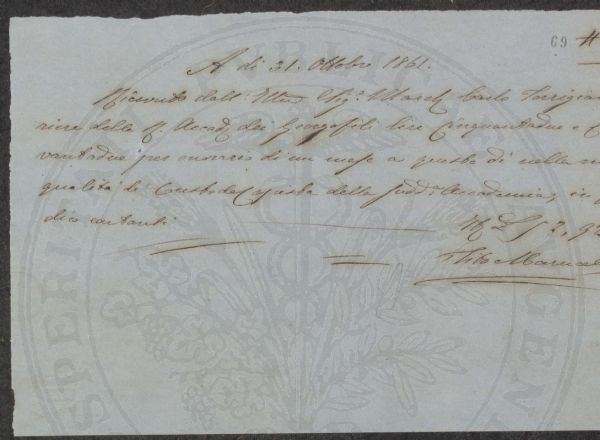 69 #
A di 31. Ottobre 1861.
Ricevuto dall' Illmo Sig.r March Carlo Torrigia
riere della R. Accad. dei Georgofili lire Cinquantadue e C
vantadue per onorario di un mese a questo dì nella
qualità di Custode Copista della sudd.a Accademia, in
dio contanti
52, 92
Tito
PUBLIC
SPERITA
GENT